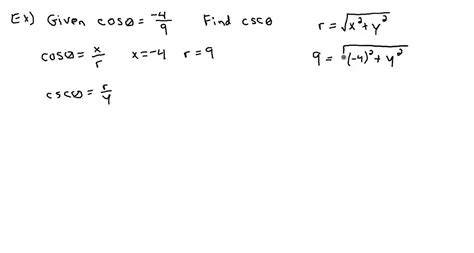 Ex) Given cosø = -4/9 Find cscø r = √x²+y²
cosø = x/r x=-4 r=9 9 = √(-4)²+y²
cscø = r/y